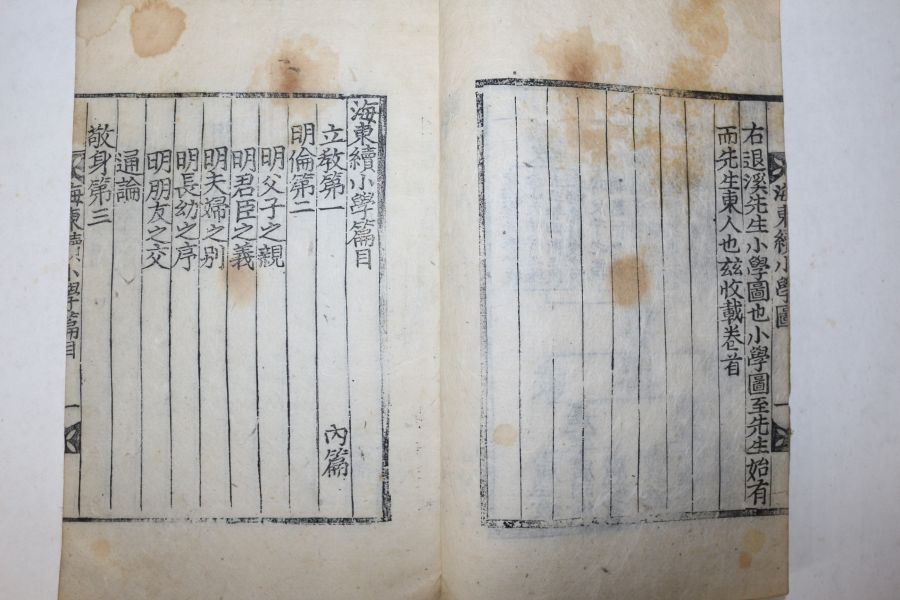 海東續小學圖
一
右退溪先生小學圖也小學圖至先生始有
而先生東人也玆收載卷首
海東續小學篇目
立敎第一
內篇
明倫第二
明父子之親
明君臣之義
明夫婦之別
明長幼之序
明朋友之交
通論
敬身第三
海東續小學篇目
一